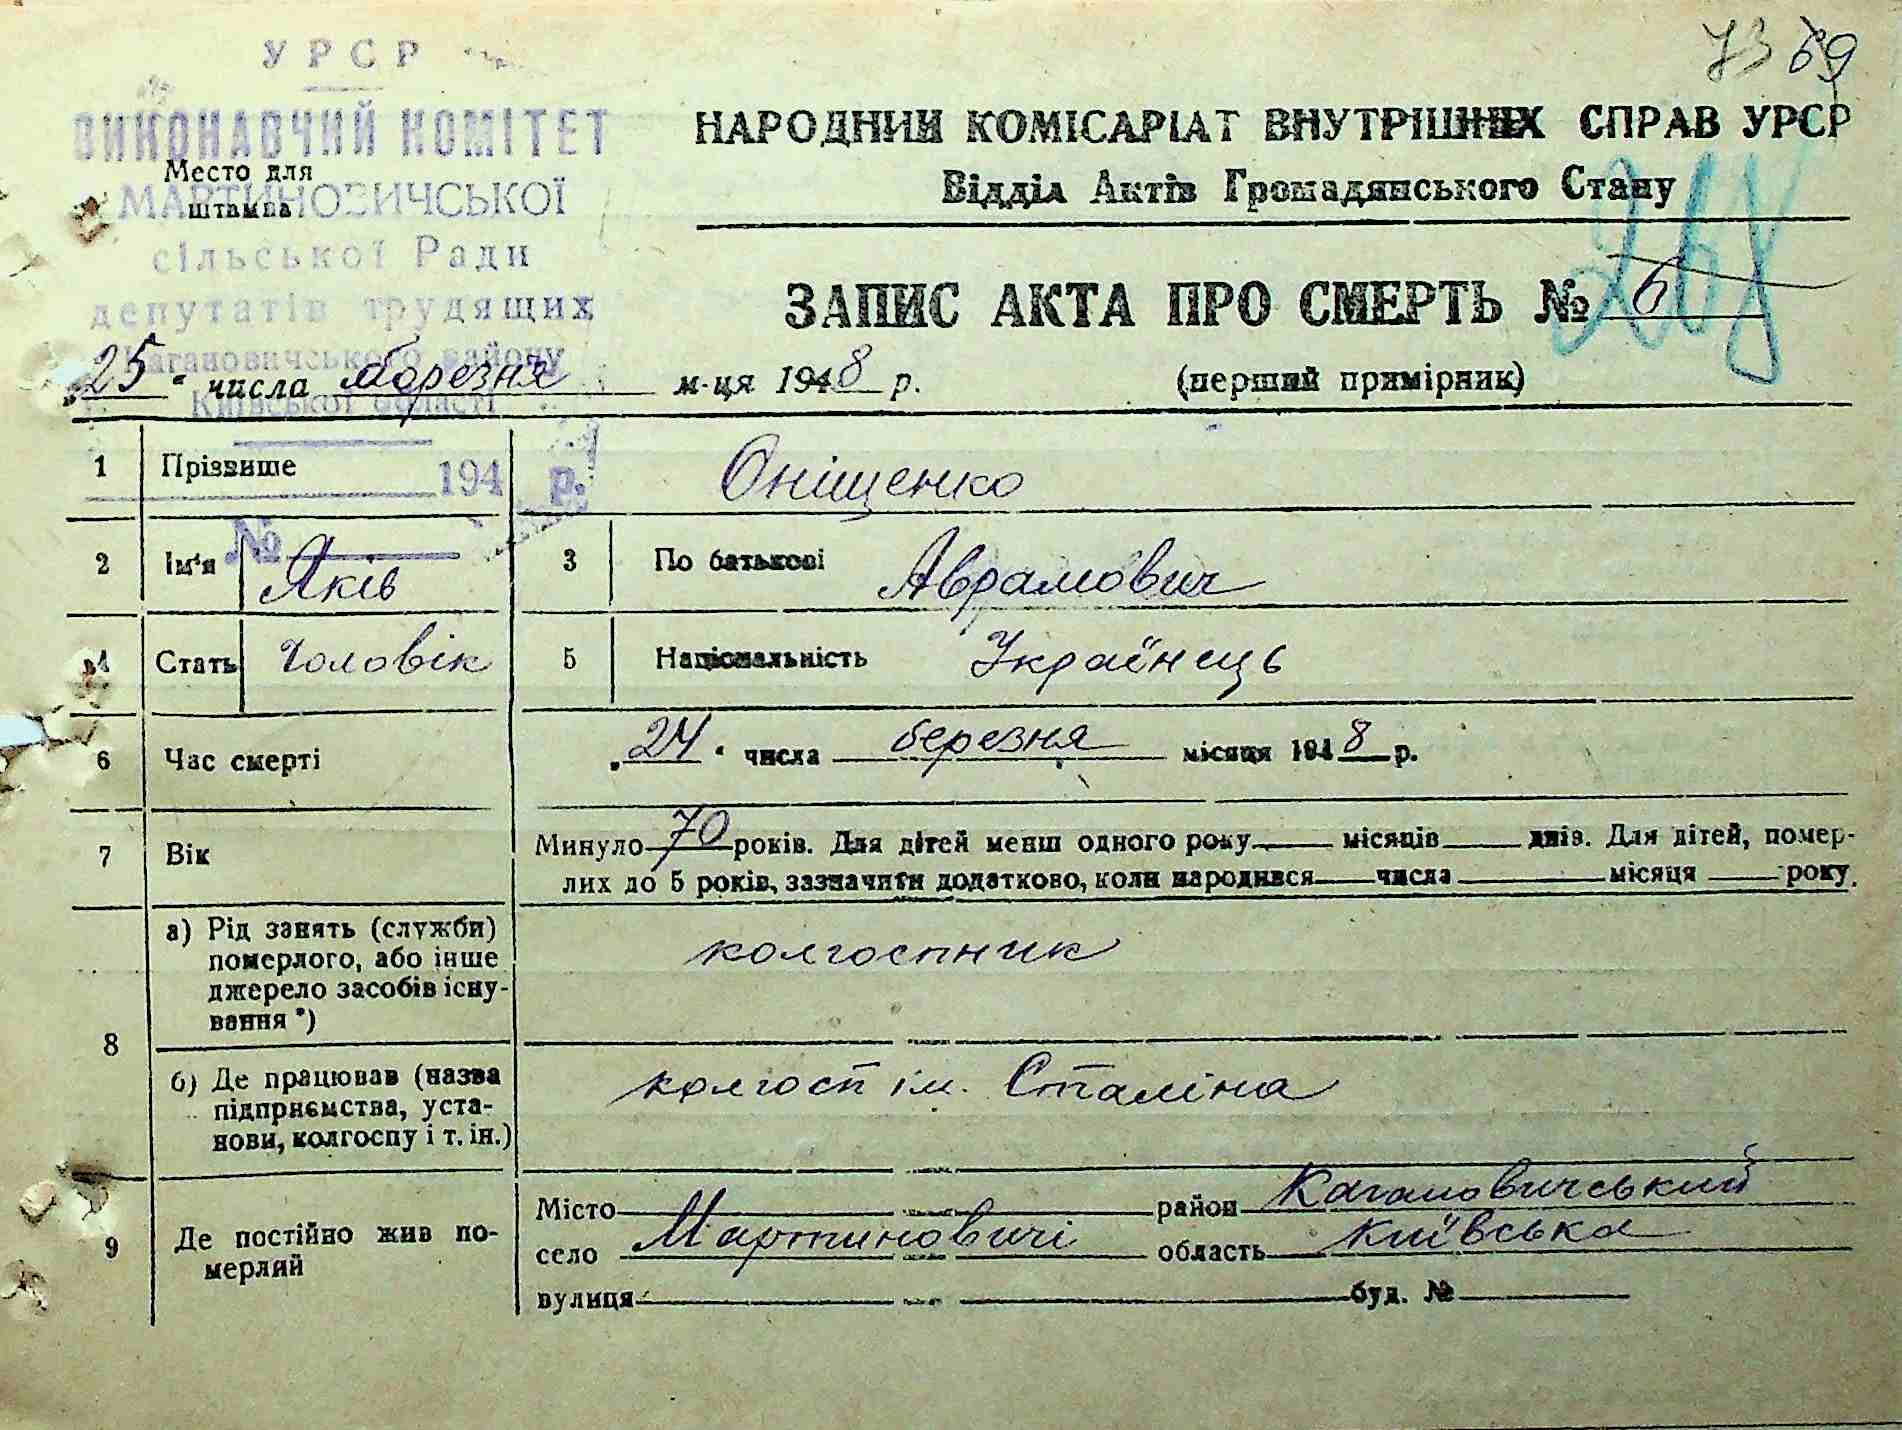 73 69
УРСР
ВИКОНАВЧИЙ КОМІТЕТ
Место для
штампа
МАРТИНОВИЧСЬКОЇ
сільської Ради
депутатів трудящих
Кагановичського району
Київської області
194 р.
№
НАРОДНИЙ КОМІСАРІАТ ВНУТРІШНІХ СПРАВ УРСР
Відділ Актів Громадянського Стану
ЗАПИС АКТА ПРО СМЕРТЬ № 6
268
25 " числа березня м-ця 1948 р.
(перший примірник)
1 Прізвише Оніщенко
2 Ім'я Яків 3 По батькові Аврамович
4 Стать Чоловік 5 Національність Українець
6 Час смерті „24" числа березня місяця 1948 р.
7 Вік Минуло 70 років. Для дітей менш одного року місяців днів. Для дітей, помер-
лих до 5 років, зазначити додатково, коли народився числа місяця року.
8 а) Рід занять (служби)
померлого, або інше
джерело засобів існу-
вання *)
колгоспник
б) Де працював (назва
підприємства, уста-
нови, колгоспу і т. ін.)
колгосп ім. Сталіна
9 Де постійно жив по-
мерлий
Місто район Кагановичський
село Мартиновичі область Київська
вулиця буд. №